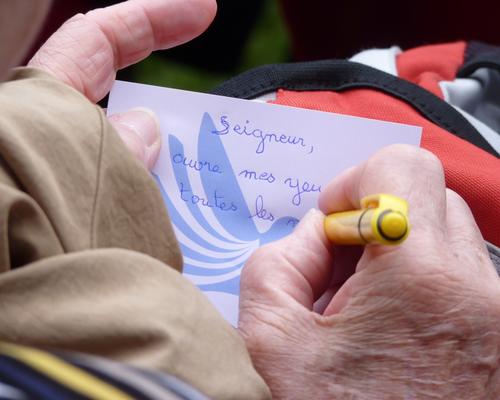 Seigneur,
ouvre mes yeu
toutes les